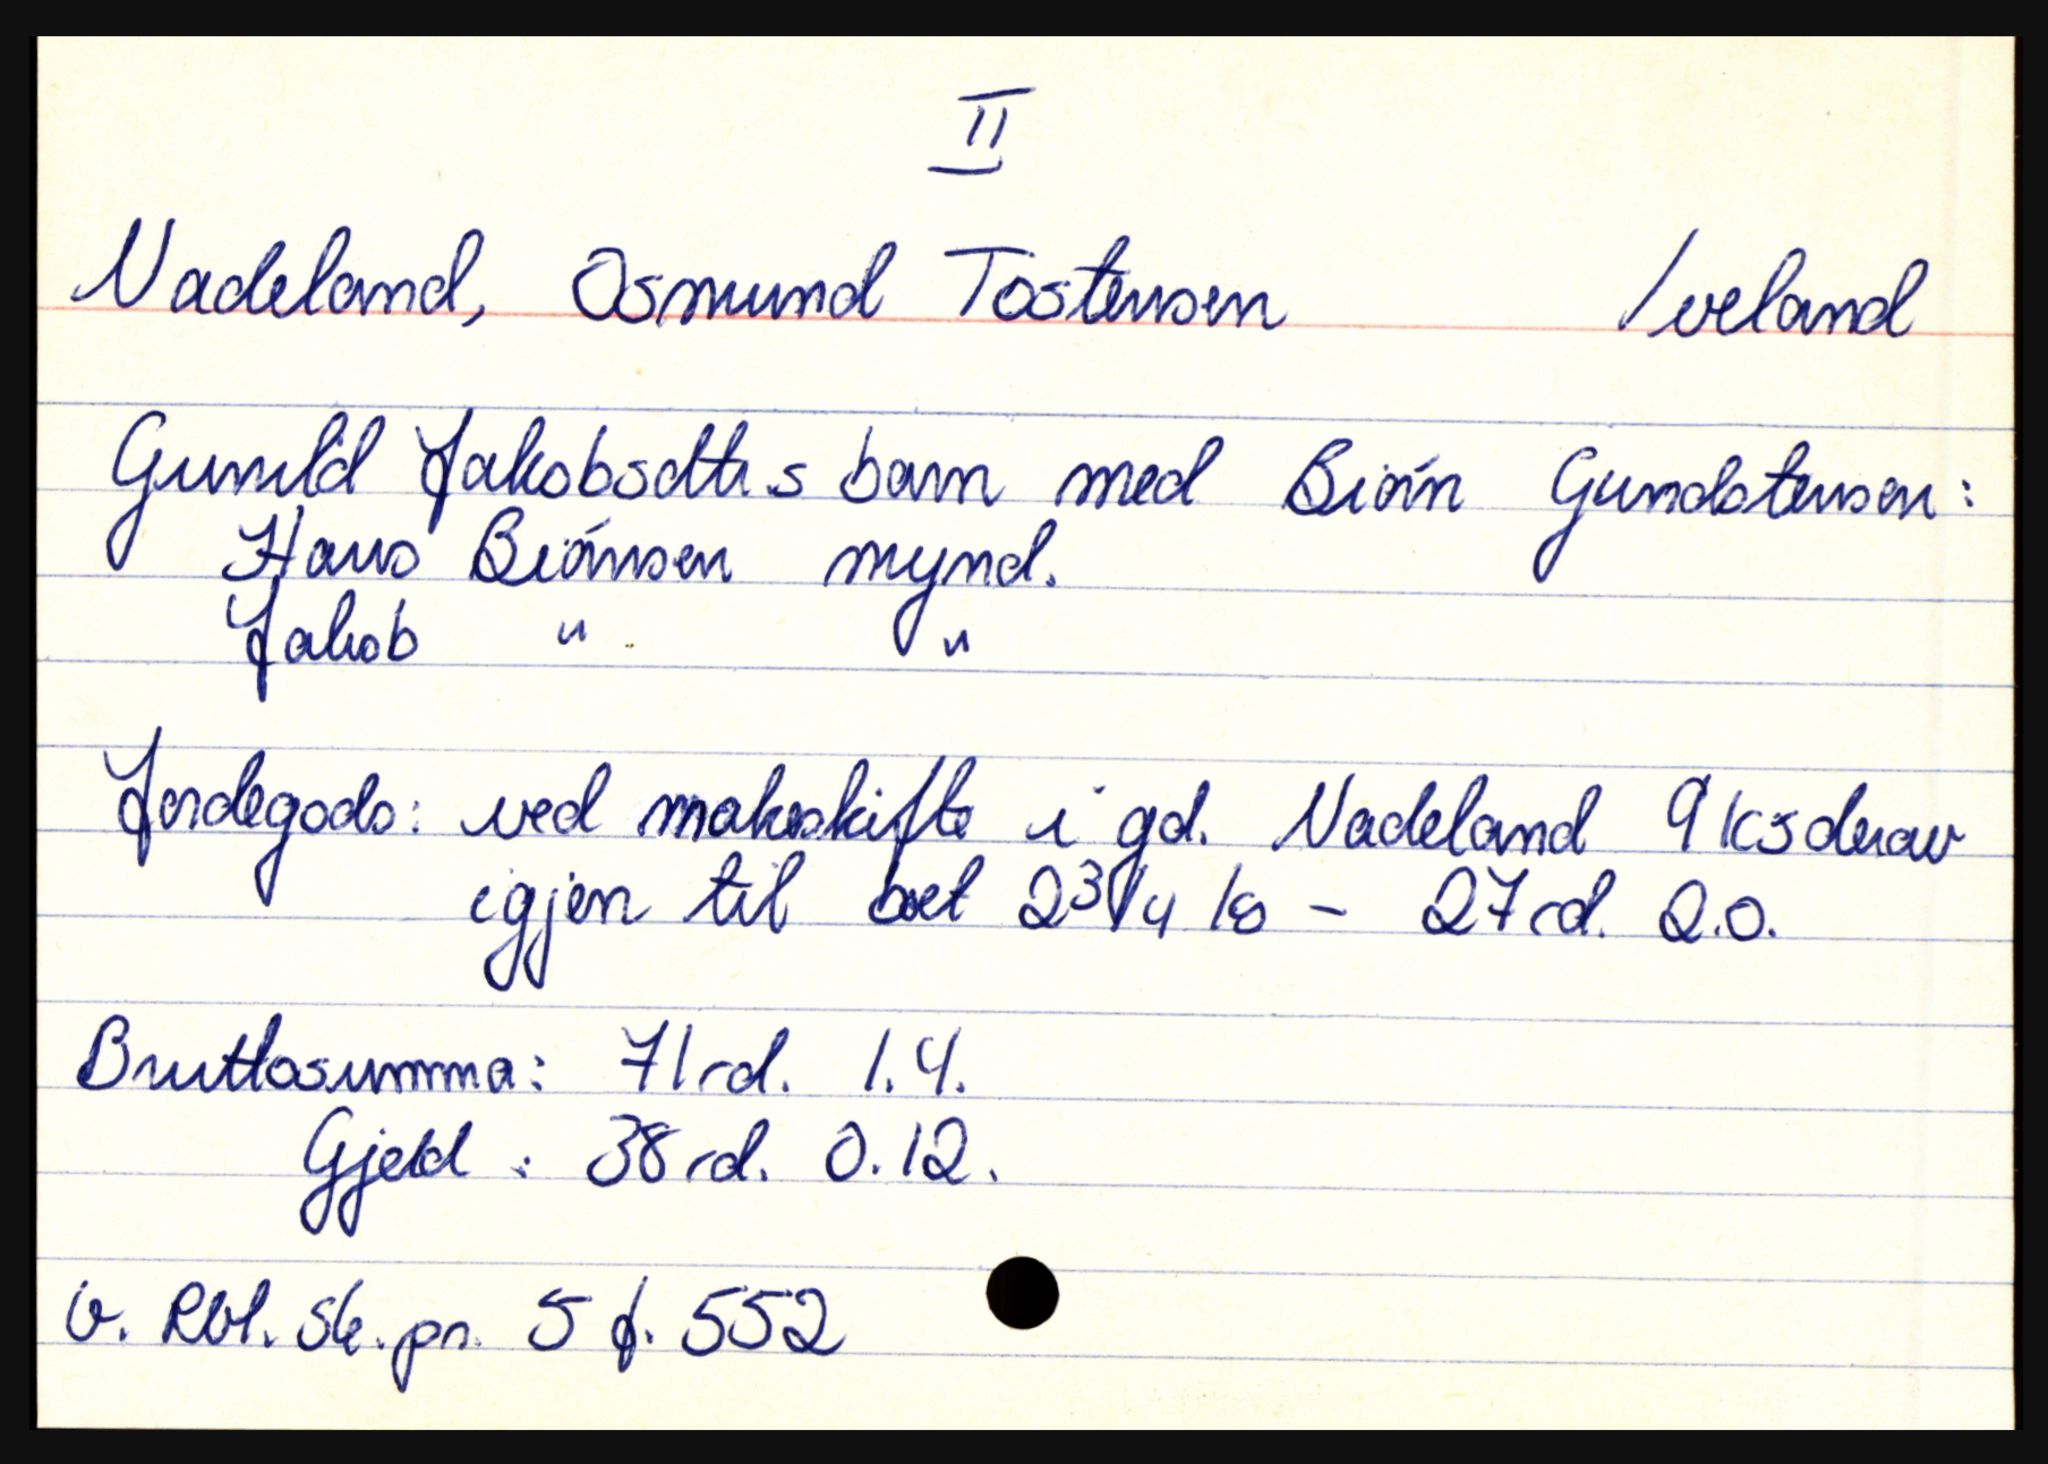 II
Nadeland, Osmund Tostensen Iveland
Gunnild Jakobsdtr.s barn med Biórn Gundstensen:
Hans Biórnsen mynd.
Jakob " "
Jordegods: ved makeskifte i gd. Nadeland 9 ks derav
igjen til boet 2 3/4 ks - 27 rd. 2.0.
Bruttosumma: 71 rd. 1.4.
Gjeld: 38 rd. 0.12.
v. Rbl. Sk. pr. 5 f. 552